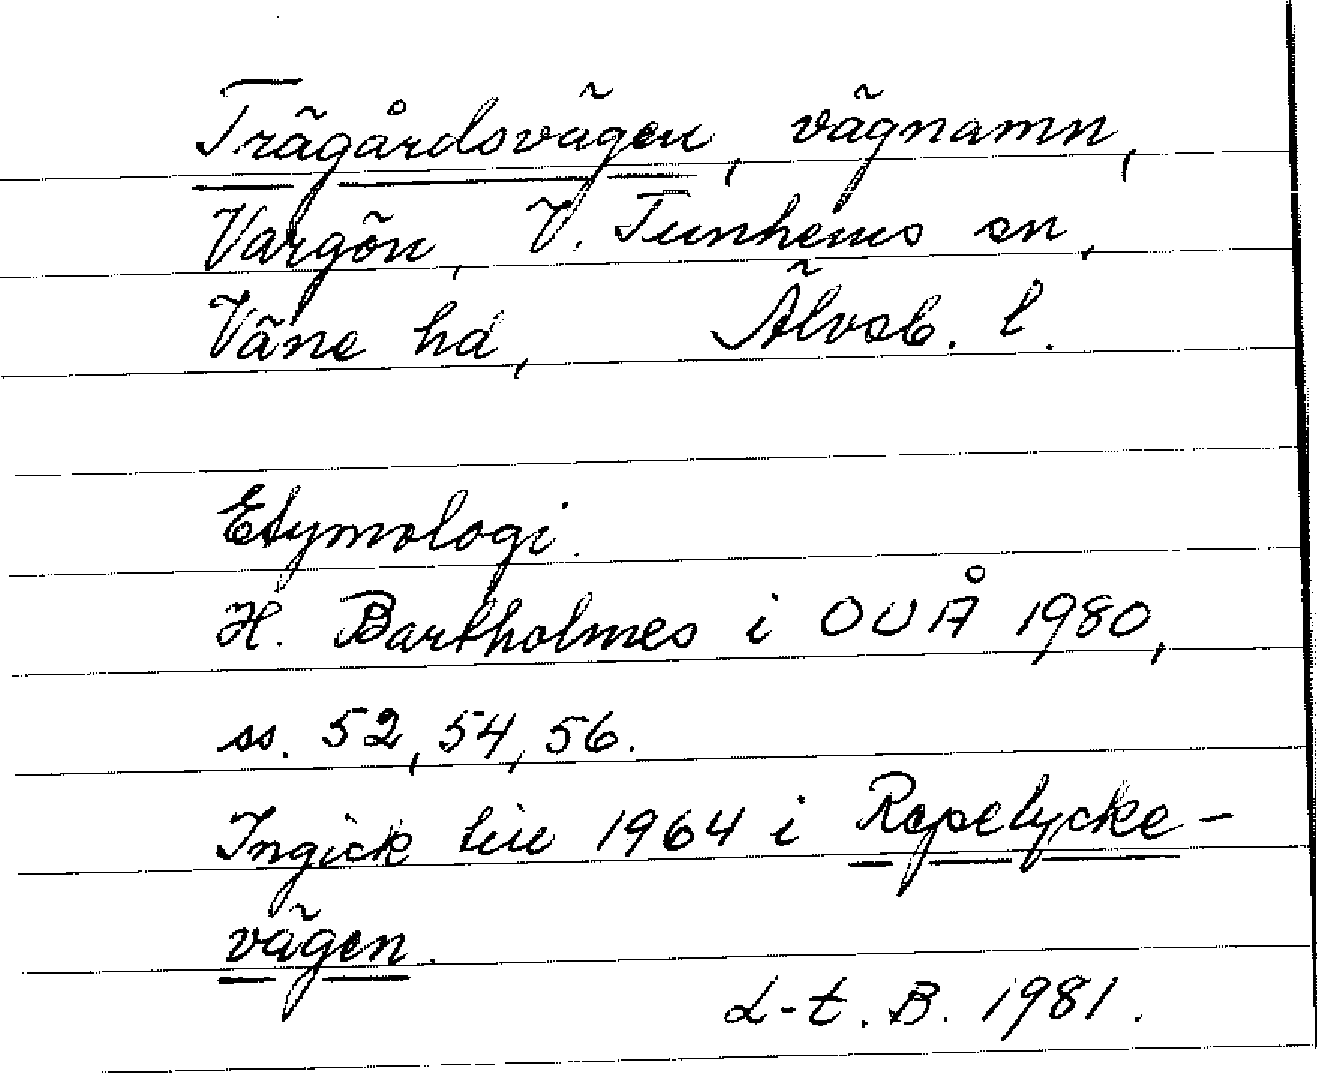 Trägårdsvägen, vägnamn,
Vargön, V. Tunhems sn,
Väne hd, Älvsb. l.
Etymologi.
H. Bartholmes i OUÅ 1980,
ss. 52, 54, 56.
Ingick till 1964 i Repelycke-
vägen.
L-t. B. 1981.